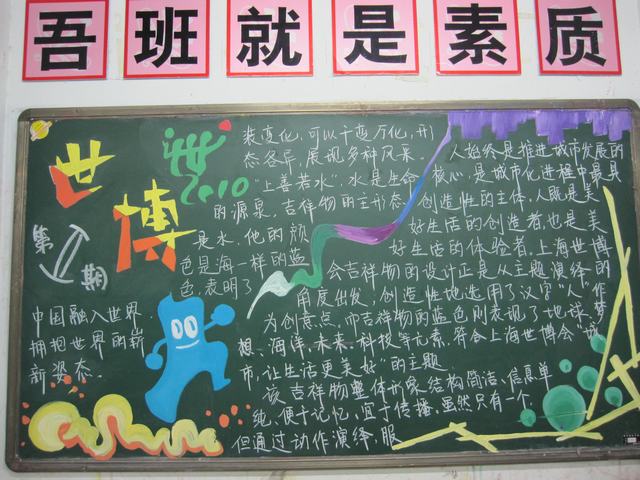 吾班就是素质
世博
2010
第 II 期
中国融入世界
拥抱世界的崭
新姿态.
但通过动作演绎、服
装变化,可以千变万化,形
态各异,展现多种风采.
"上善若水",水是生命
的源泉,吉祥物的主形态
是水,他的颜
色是海一样的蓝
色,表明了
人始终是推进城市发展的
核心,是城市化进程中最具
创造性的主体,人既是美
好生活的创造者,也是美
好生活的体验者,上海世博
会吉祥物的设计正是从主题演绎的
角度出发,创造性地选用了汉字"人"作
为创意点,而吉祥物的蓝色则表现了地球、梦
想、海洋、未来、科技等元素,符合上海世博会"城
市,让生活更美好"的主题
该吉祥物整体形象结构简洁、信息单
纯、便于记忆,宜于传播,虽然只有一个,